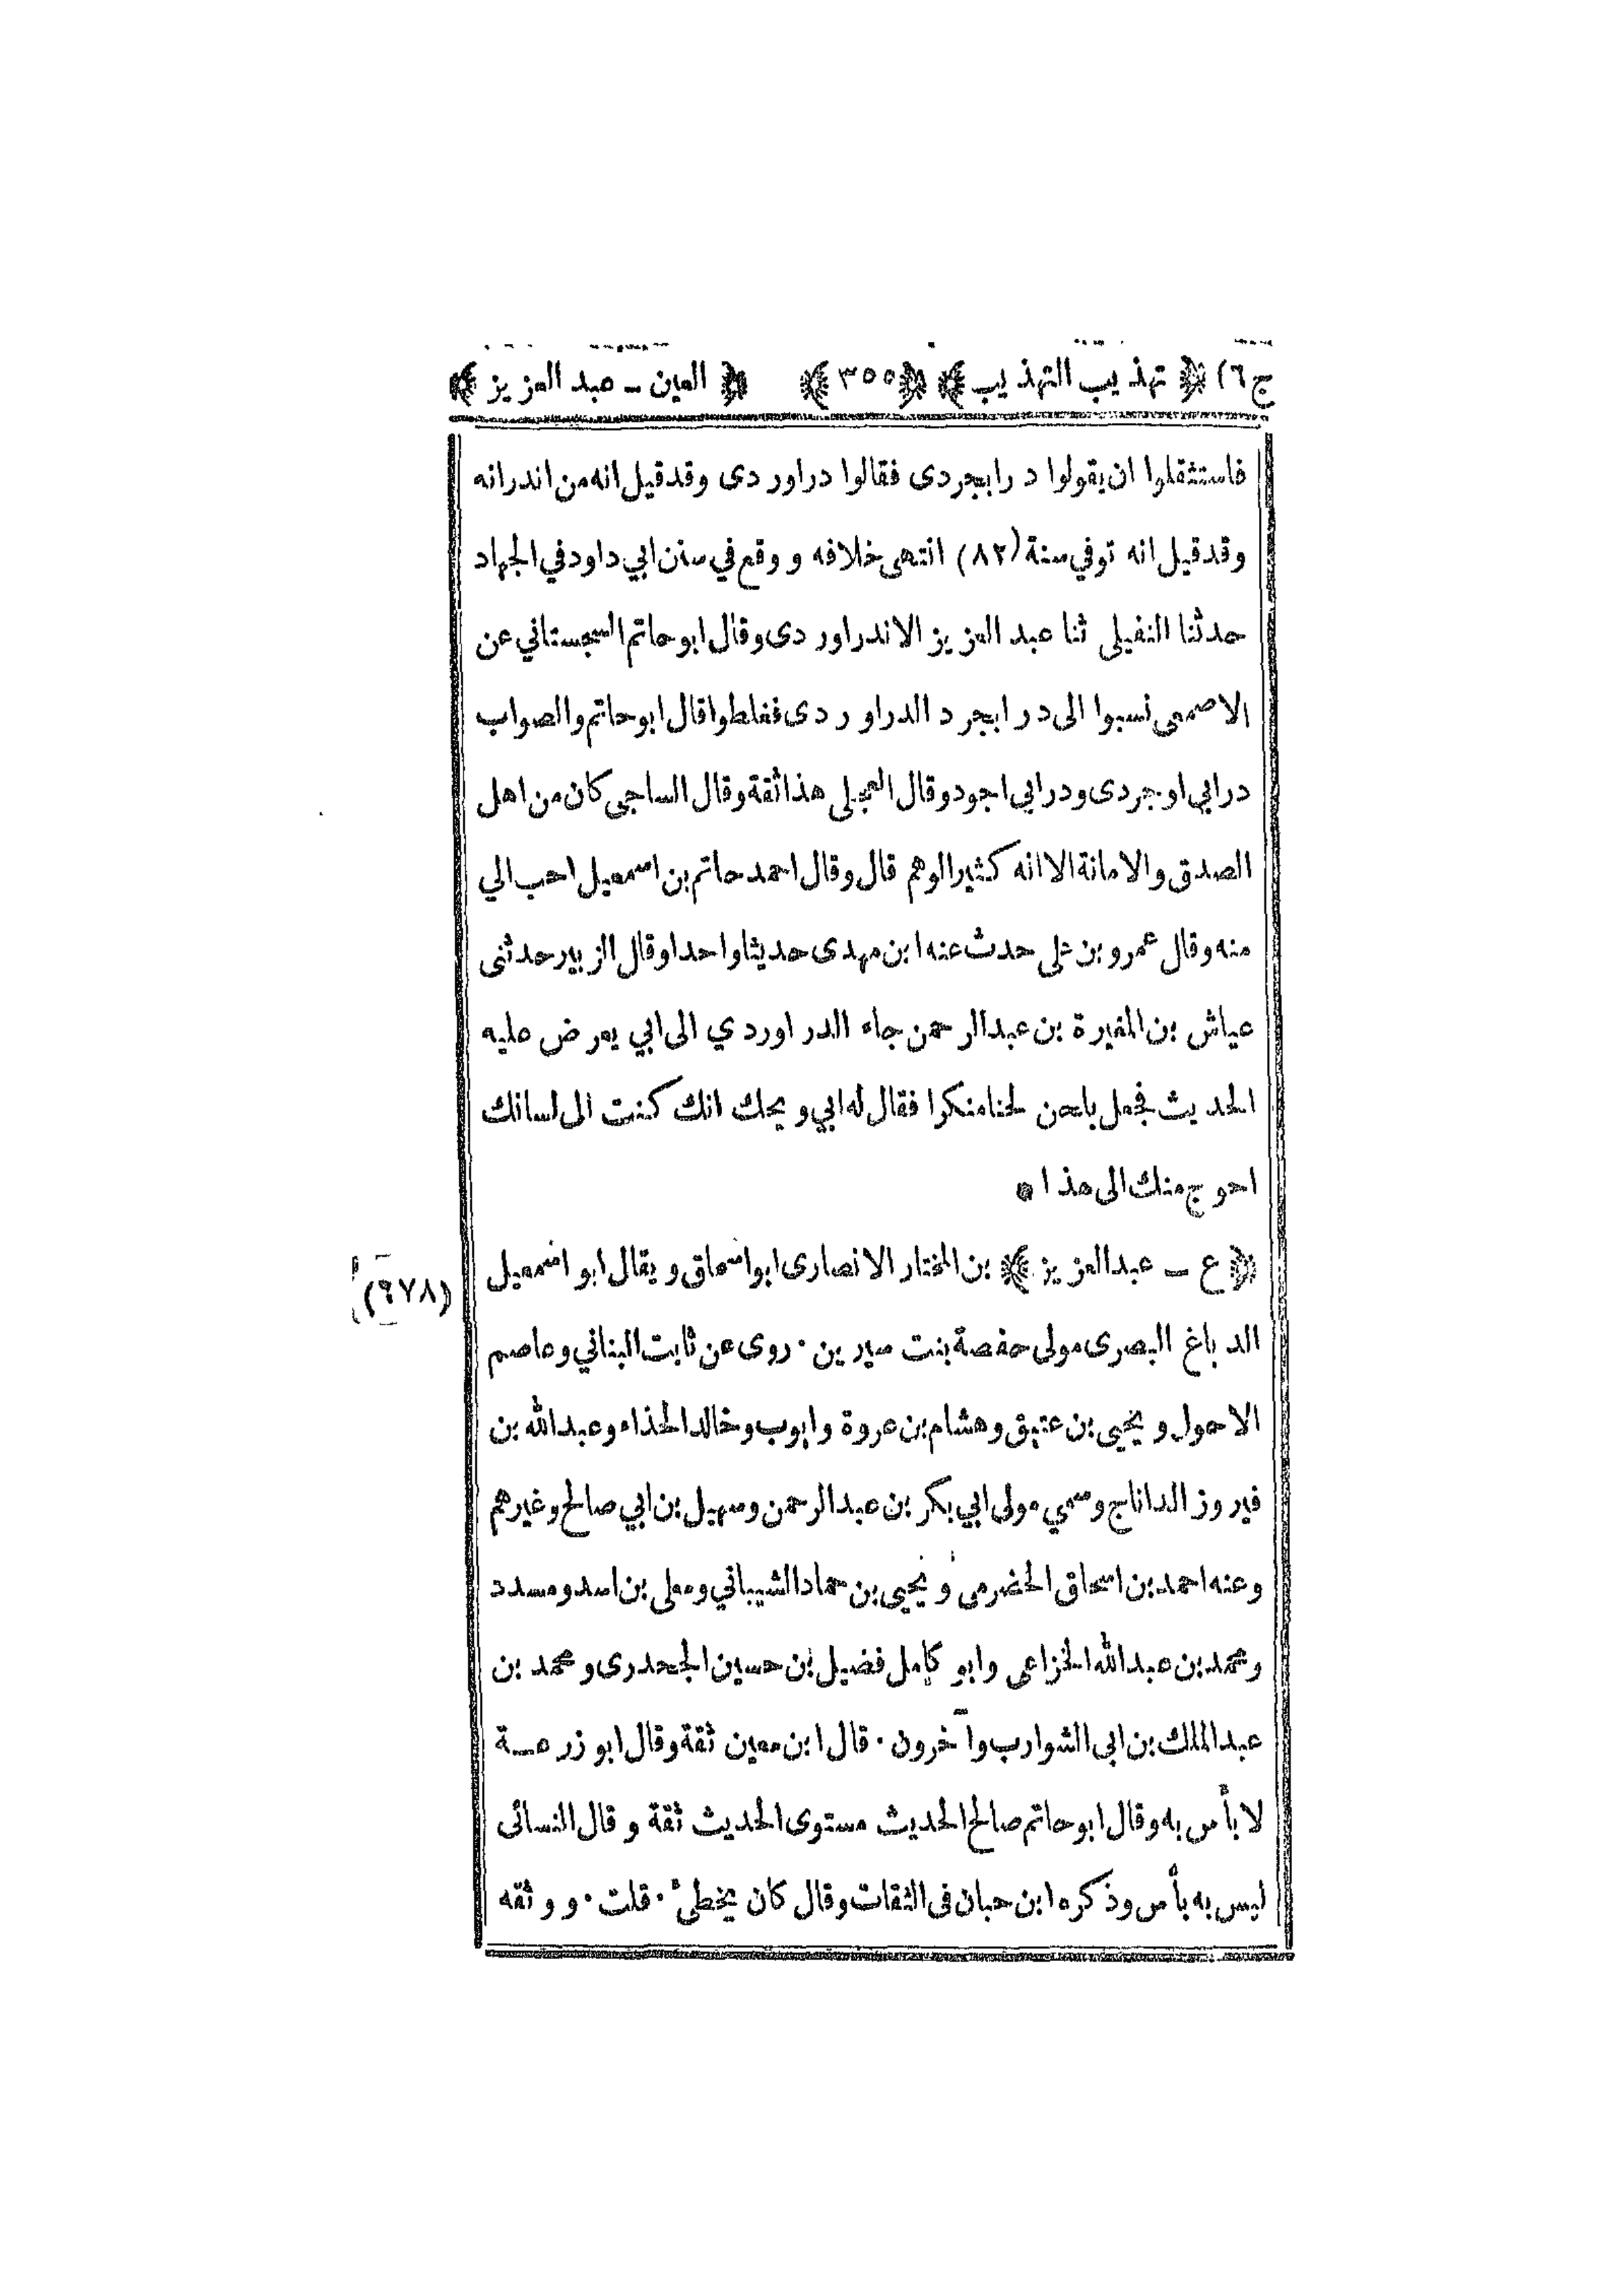 ج ٦) ﴿ تهذيب التهذيب ﴾ ﴿٣٥٥﴾ ﴿ العين ــ عبد العزيز ﴾
فاستثقلوا ان يقولوا درابجردى فقالوا دراوردى وقد قيل انه من اندرانه
وقد قيل انه توفي سنة (٨٢) انتهى خلافه ووقع في سنن ابي داود في الجهاد
حدثنا النفيلى ثنا عبد العزيز الاندراوردى وقال ابو حاتم السجستاني عن
الاصمعى نسبوا الى درابجرد الدراوردى فغلطوا قال ابو حاتم والصواب
درابي او جردى ودرابي اجود وقال العجلى هذا ثقة وقال الساجى كان من اهل
الصدق والامانة الا انه كثير الوهم قال وقال احمد حاتم بن اسمعيل احب الي
منه وقال عمرو بن على حدث عنه ابن مهدى حديثا واحدا وقال الزبير حدثنى
عياش بن المغيرة بن عبد الرحمن جاء الدراوردي الى ابي يعرض عليه
الحديث فجعل يلحن لحنا منكرا فقال له ابي ويحك انك كنت الى لسانك
احوج منك الى هذا ●
﴿ ع ــ عبد العزيز ﴾ بن المختار الانصارى ابو اسحاق ويقال ابو اسمعيل
(٩٧٨)
الدباغ البصرى مولى حفصة بنت سيرين ٠ روى عن ثابت البناني وعاصم
الاحول ويحيى بن عتيق وهشام بن عروة وايوب وخالد الحذاء وعبد الله بن
فيروز الداناج وسمي مولى ابي بكر بن عبد الرحمن وسهيل بن ابي صالح وغيرهم
وعنه احمد بن اسحاق الحضرمى ويحيى بن حماد الشيباني ومعلى بن اسد ومسدد
ومحمد بن عبد الله الخزاعى وابو كامل فضيل بن حسين الجحدرى ومحمد بن
عبد الملك بن ابى الشوارب وآخرون ٠ قال ابن معين ثقة وقال ابو زرعــة
لا بأس به وقال ابو حاتم صالح الحديث مستوى الحديث ثقة وقال النسائى
ليس به بأس وذكره ابن حبان فى الثقات وقال كان يخطئ ٠ قلت ٠ ووثقه